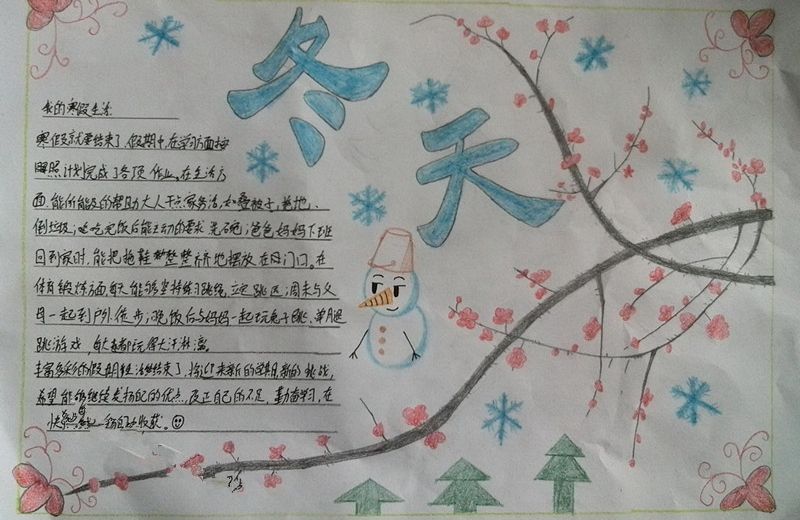 冬天
我的寒假生活
寒假就要结束了，假期中，在学习方面按
照计划完成了各项作业。在生活方
面，能所能及的帮助大人干点家务活，如叠被子、拖地、
倒垃圾；吃完饭后能主动的要求洗碗；爸爸妈妈下班
回到家时，能把拖鞋整整齐齐地摆放在门口。在
体育锻炼方面每天能够坚持练习跳绳，立定跳远；周末与父
母一起到户外徒步；晚饭后与妈妈一起玩兔子跳、单腿
跳游戏，每天都玩得大汗淋漓。
丰富多彩的假期生活结束了，将迎来新的学期，新的挑战，
希望能够继续发扬自己的优点，改正自己的不足，勤奋学习，在
快乐收获。